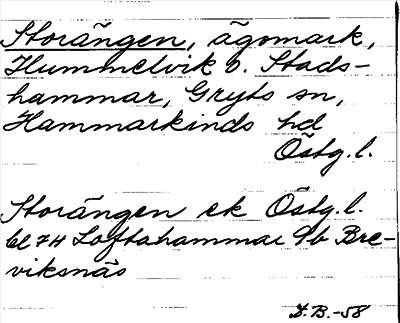 Storängen, ägomark,
Hummelvik o. Stads-
hammar, Gryts sn,
Hammarkinds hd
Östg. l.
Storängen ek Östg. l.
bl 74 Loftahammar 9b Bre-
viksnäs
D.B.-58